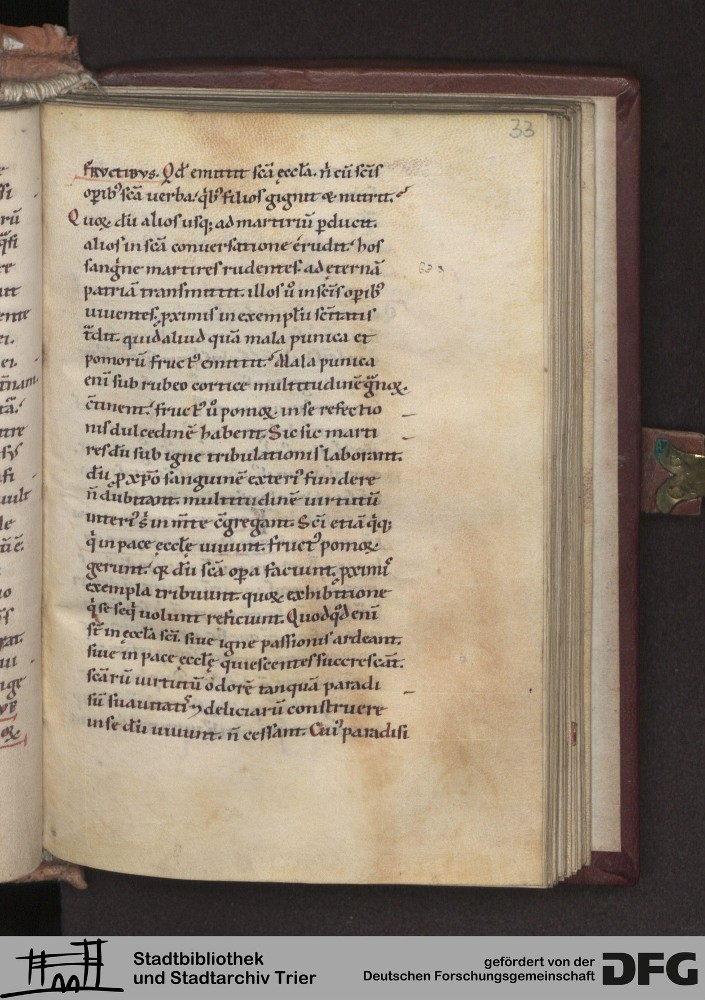 33
fructibus. Qd̄ emittit sc̄a ęccl̄a. n̄ cū sc̄is
oꝑib; sc̄a uerba. qⁱb; filios gignit & nutrit.
Quoꝝ dū alios usq; ad martiriū ꝑducit.
alios in sc̄a conuersatione erudit. hos
sangⁱne martires rudentes. ad eternā
patriā transmittit. illos ů in sc̄is oꝑib;
uiuentes. ꝓximis in exemplū sc̄itatis
quid aliud quā mala punica et
pomorū fruct᷒ emittit. Mala punica
eni sub rubeo cortice multitudinē gͣnoꝝ
c̄tinent. fruct᷒ ů pomoꝝ in se refectio
nis dulcedinē habent. Sic sic marti
res dū sub igne tribulationis laborant.
dū ꝓ xp̄o sanguinē exteri᷒ fundere
n̄ dubitant. multitudinē uirtutū
interi᷒ in m̄te c̄gregant. Sc̄i etiā qⁱq;
qⁱ in pace ęccl̄ę uiuunt. fruct᷒ pomoꝝ
gerunt. dū sc̄a oꝑa faciunt. ꝓximis
exempla tribuunt. quoꝝ exhibitione
qⁱ se seqⁱ uolunt reficiunt. Quodqd̄ eni
st̄ in ęccl̄a sc̄i. siue igne passionis ardeant.
siue in pace ęccl̄ę quiescentes succrescāt.
sc̄arū uirtutū odorē tanquā paradi
sū suauitatis ⁊ deliciarū construere
in se dū uiuunt. n̄ cessant. Cui᷒ paradisi
Stadtbibliothek
und Stadtarchiv Trier
gefördert von der
Deutschen Forschungsgemeinschaft
DFG